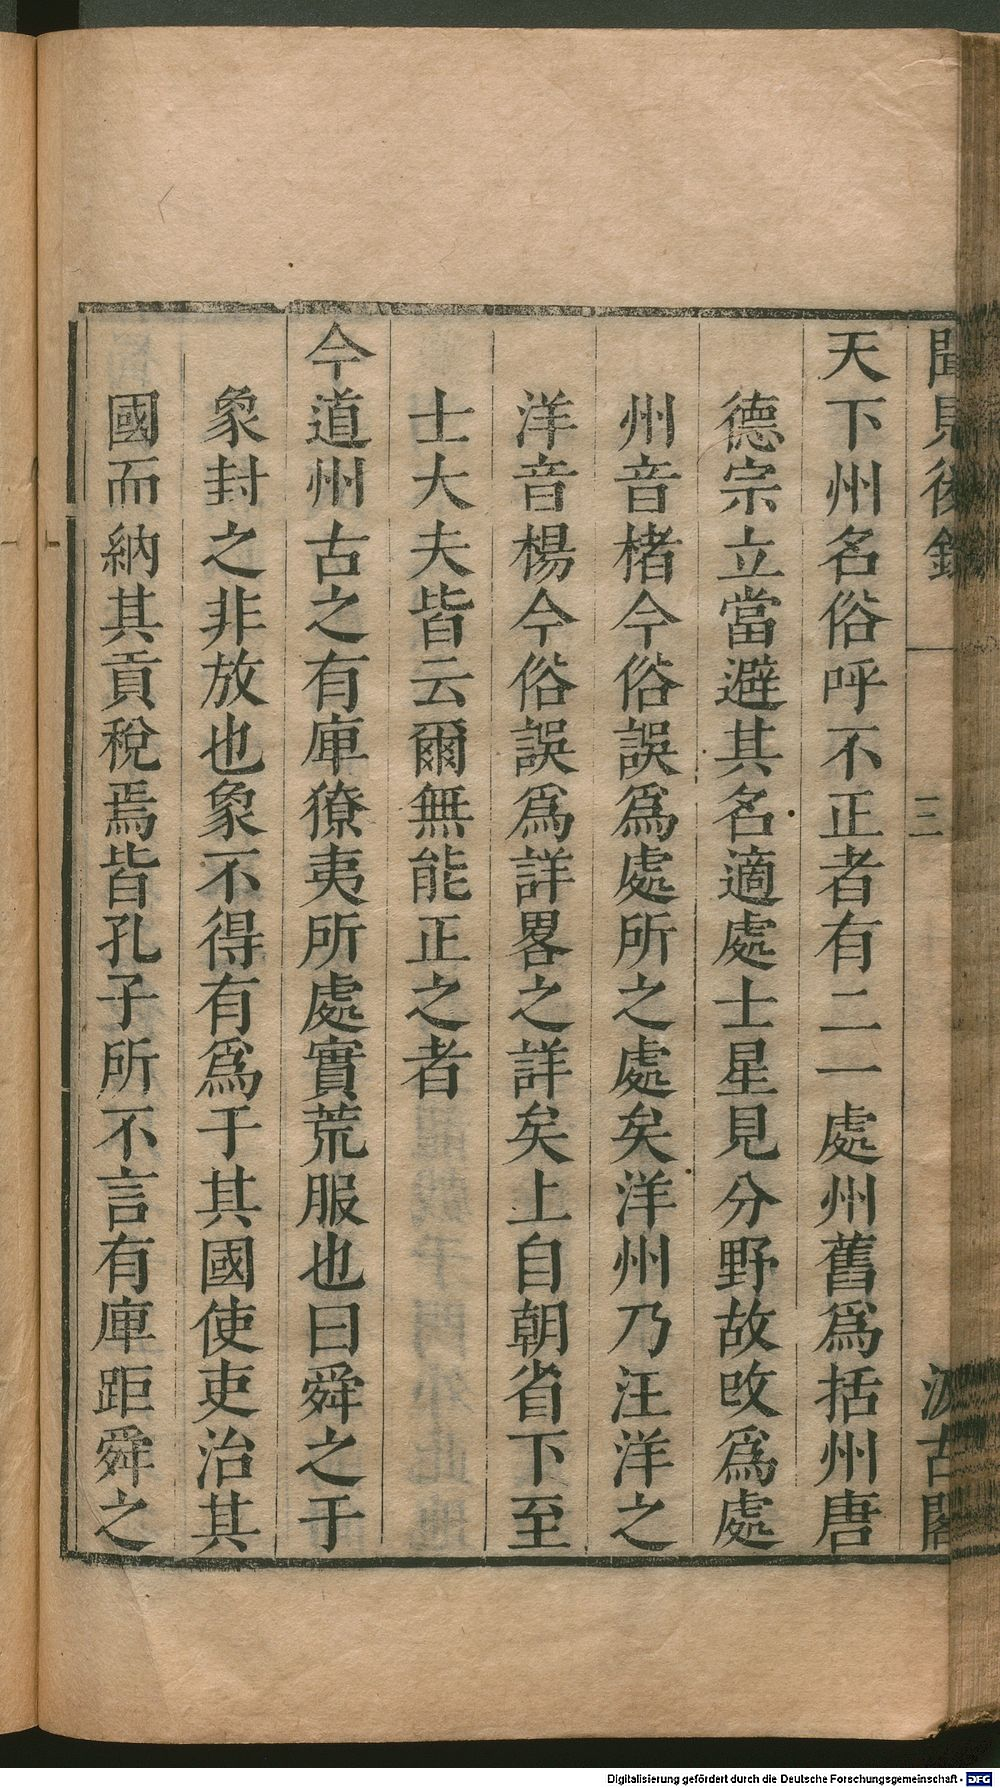 聞見後錄 三 汲古閣
天下州名俗呼不正者有二一處州舊爲括州唐
德宗立當避其名適處士星見分野故改爲處
州音楮今俗誤爲處所之處矣洋州乃汪洋之
洋音楊今俗誤爲詳畧之詳矣上自朝省下至
士大夫皆云爾無能正之者
今道州古之有庳獠夷所處實荒服也曰舜之于
象封之非放也象不得有爲于其國使吏治其
國而納其貢稅焉皆孔子所不言有庳距舜之
Digitalisierung gefördert durch die Deutsche Forschungsgemeinschaft - DFG